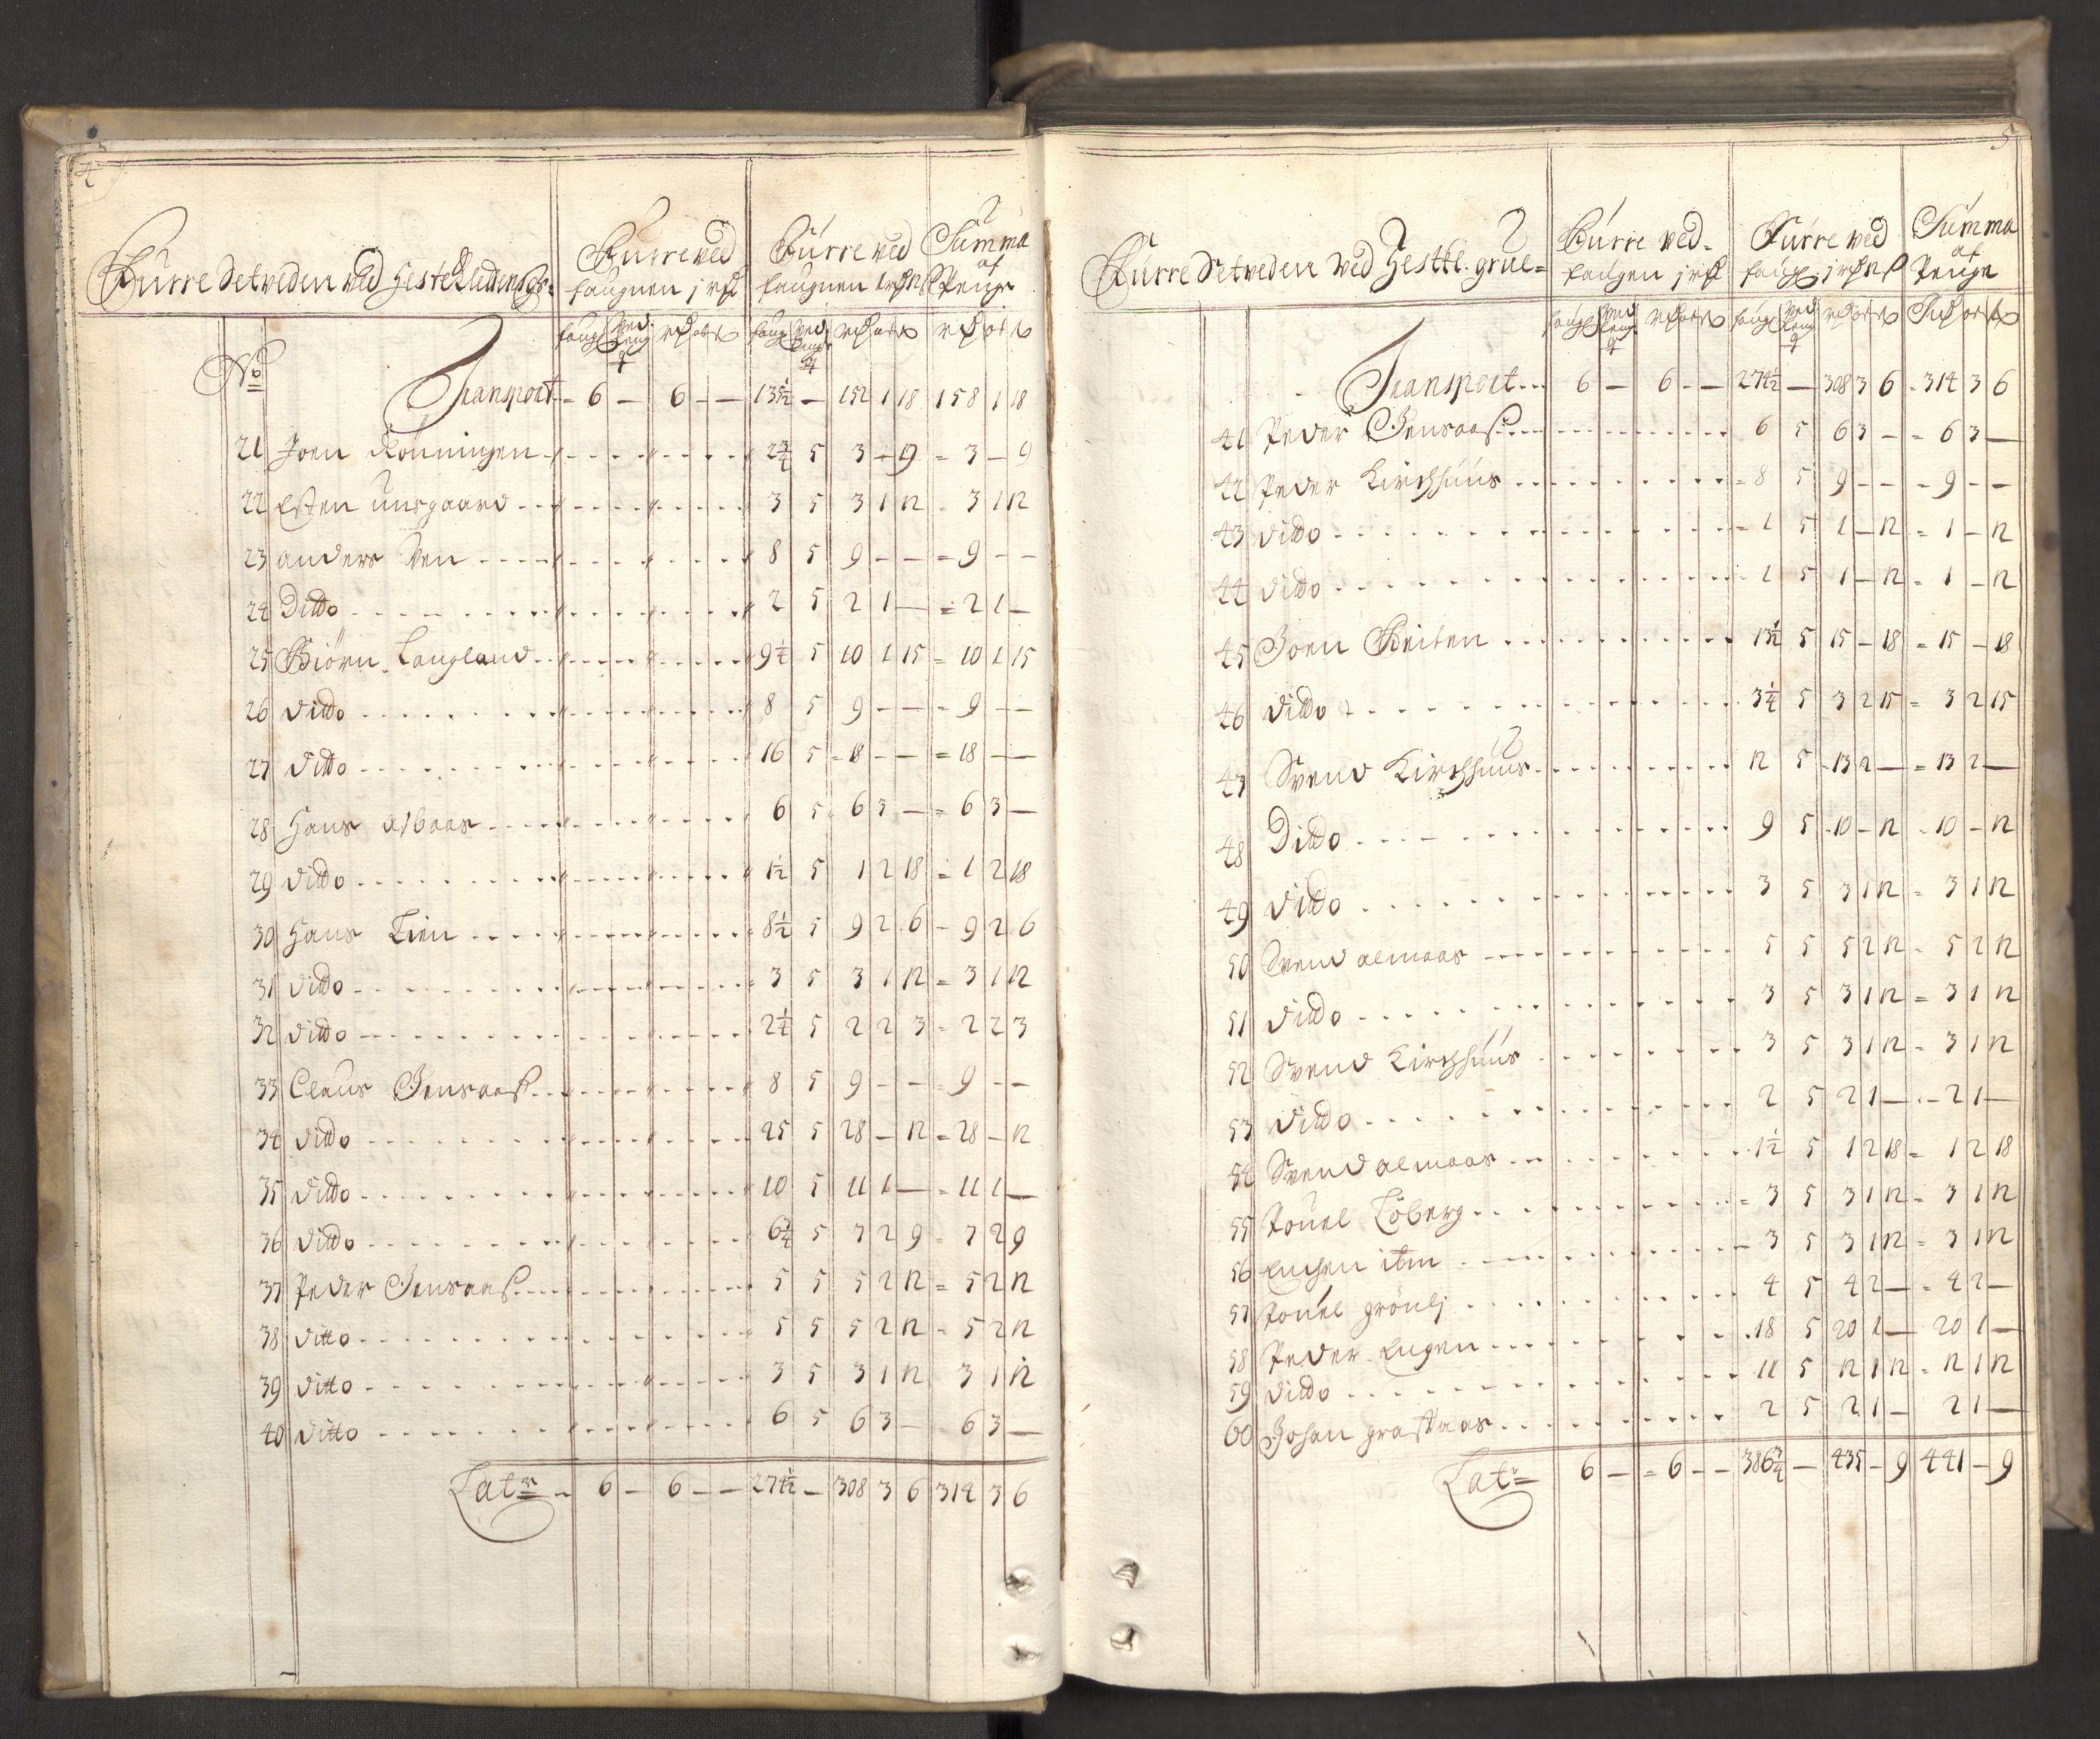 4
Furre Setveden ved Hesteklettens gr:
Furre ved faugnen 1 rd
Furre ved faugnen 1 rd 12 s
Summa af Penge
faug ved leng q rd ort s faug ved leng q rd ort s rd ort s
No
Transport - 6 - 6 - - 135½ - 152 1 18 158 1 18
21 Joen Rönningen 2¾ 5 3 - 9 = 3 - 9
22 Esten unsgaard 3 5 3 1 12 = 3 1 12
23 anders Ven 8 5 9 - - = 9 - -
24 Ditto 2 5 2 1 - = 2 1 -
25 Biörn Langland 9¼ 5 10 1 15 = 10 1 15
26 ditto 8 5 9 - - = 9 - -
27 ditto 16 5 = 18 - - = 18 - -
28 Hans Aasaas 6 5 6 3 - = 6 3 -
29 ditto 1½ 5 1 2 18 = 1 2 18
30 Hans Lien 8½ 5 9 2 6 = 9 2 6
31 ditto 3 5 3 1 12 = 3 1 12
32 ditto 2¼ 5 2 2 3 = 2 2 3
33 Claus Jensaas 8 5 9 - - = 9 - -
34 ditto 25 5 28 - 12 = 28 - 12
35 ditto 10 5 11 1 - = 11 1 -
36 ditto 6¾ 5 7 2 9 = 7 2 9
37 Peder Jensaas 5 5 5 2 12 = 5 2 12
38 ditto 5 5 5 2 12 = 5 2 12
39 ditto 3 5 3 1 12 3 1 12
40 ditto 6 5 6 3 - = 6 3 -
Latr - 6 - 6 - - 274½ - 308 3 6 314 3 6
5
Furre Setveden ved Hestkl. grue =
Furre ved faugen 1 rd
Furre ved faug 1 rd 12 s
Summa af Penge
faug ved leng q rd ort s faug ved leng q rd ort s rd ort s
Transport 6 - 6 - - 274½ - 308 3 6 = 314 3 6
41 Peder Jensaas 6 5 6 3 - = 6 3 -
42 Peder Kirchhuus 8 5 9 - - = 9 - -
43 ditto 1 5 1 - 12 = 1 - 12
44 ditto 1 5 1 - 12 = 1 - 12
45 Joen Reiten 13½ 5 15 - 18 = 15 - 18
46 ditto 3¼ 5 3 2 15 = 3 2 15
47 Svend Kirchhuus 12 5 13 2 - = 13 2 -
48 Ditto 9 5 10 - 12 = 10 - 12
49 ditto 3 5 3 1 12 = 3 1 12
50 Svend almaas 5 5 5 2 12 = 5 2 12
51 ditto 3 5 3 1 12 = 3 1 12
52 Svend Kirchhuus 3 5 3 1 12 = 3 1 12
53 ditto 2 5 2 1 - = 2 1 -
54 Svend almaas 1½ 5 1 2 18 = 1 2 18
55 Pouel Löberg 3 5 3 1 12 = 3 1 12
56 Engen itm 3 5 3 1 12 = 3 1 12
57 Pouel grönlj 4 5 4 2 - = 4 2 -
58 Peder Engen 18 5 20 1 - 20 1 -
59 ditto 11 5 12 1 12 = 12 1 12
60 Johan graftaas 2 5 2 1 - 2 1 -
Latr 6 - = 6 - - 386¾ - 435 - 9 441 - 9